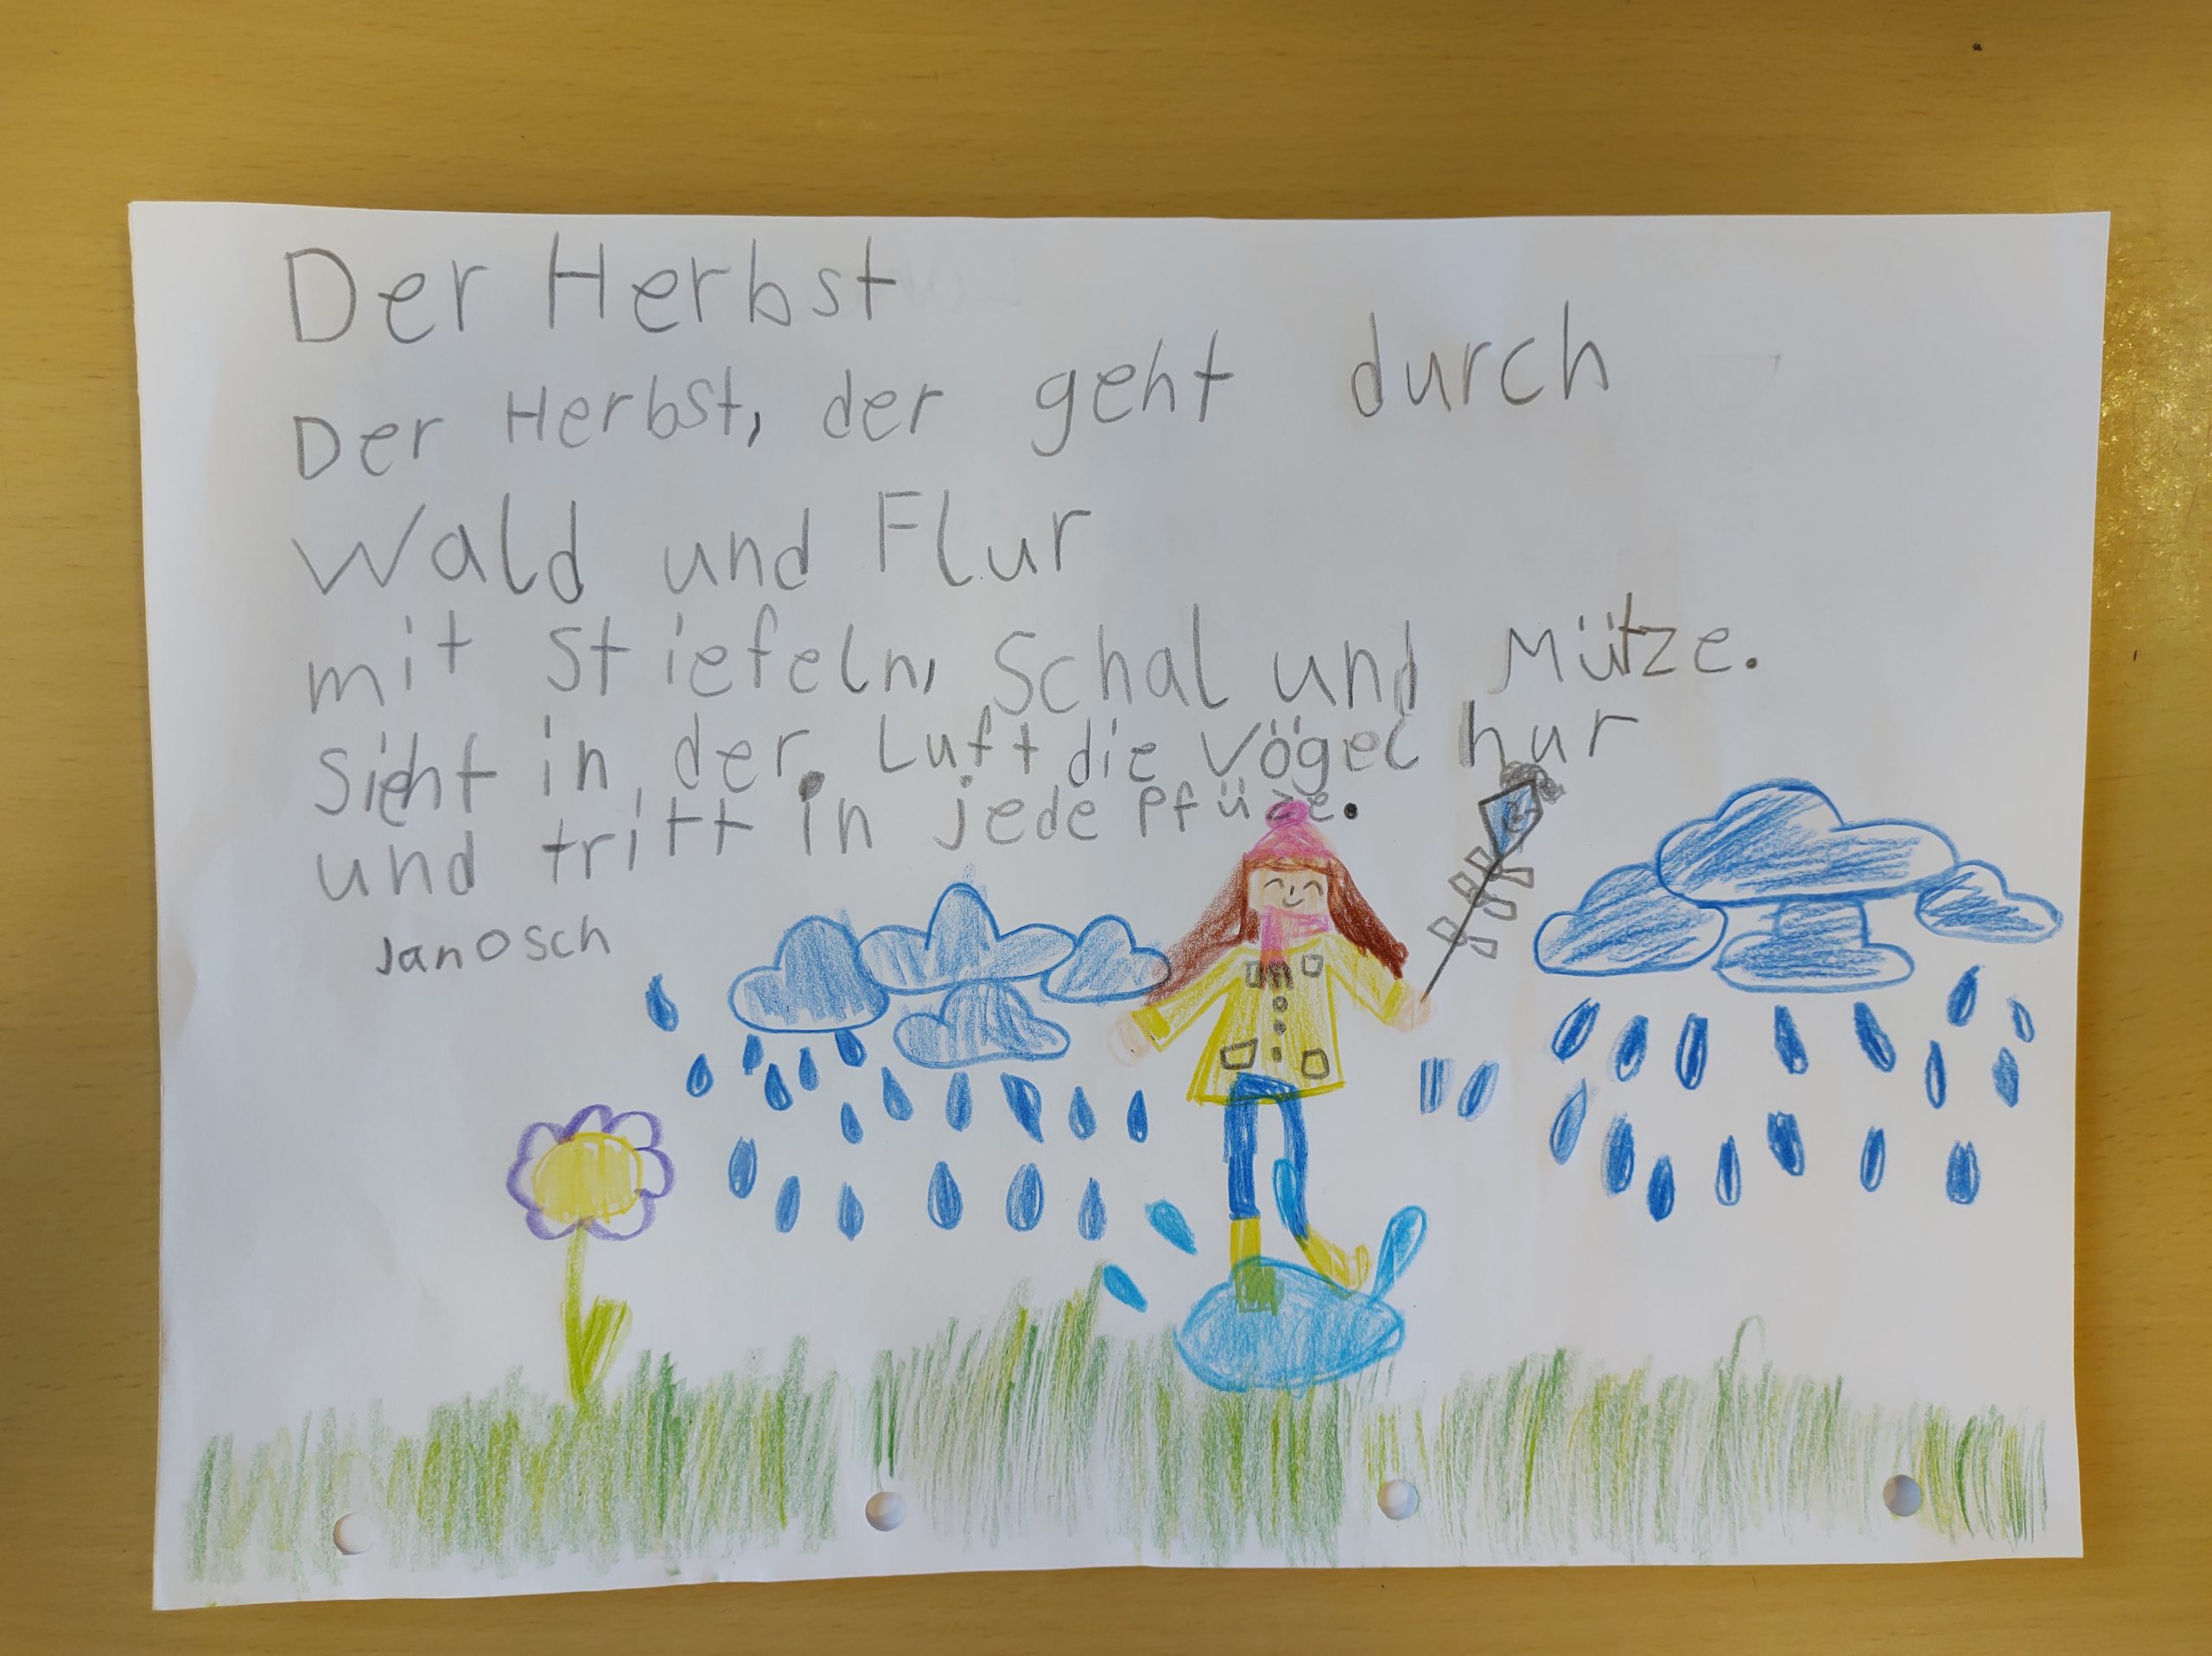 Der Herbst
Der Herbst, der geht durch
Wald und Flur
mit Stiefeln, Schal und Mütze.
Sieht in der Luft die Vögel nur
und tritt in jede Pfüze.
Janosch